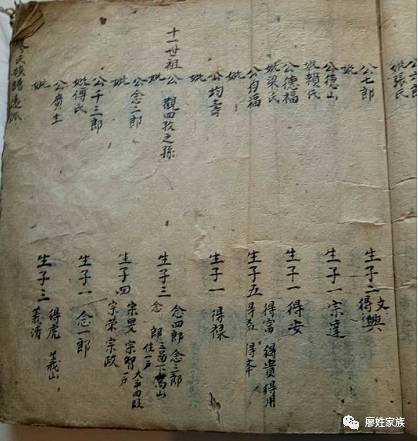 妣張氏
公七郎 生子二 文興
妣
公德山 生子一 宗達
妣賴氏
公德福 生子一 得安
妣梁氏
公有福 生子五 得富 得貴 得用
妣
公均壽 生子一 得祿
妣
十一世祖 公 觀四孜之孫 生子三 念四郎 念三郎
妣
公念二郎 生子四 宗旻 宗智
妣 宗榮 宗政
公千三郎 生子一 念一郎
妣傅氏
公廣生 生子三 得虎 義山
妣 義清
氏族譜
廖姓家族